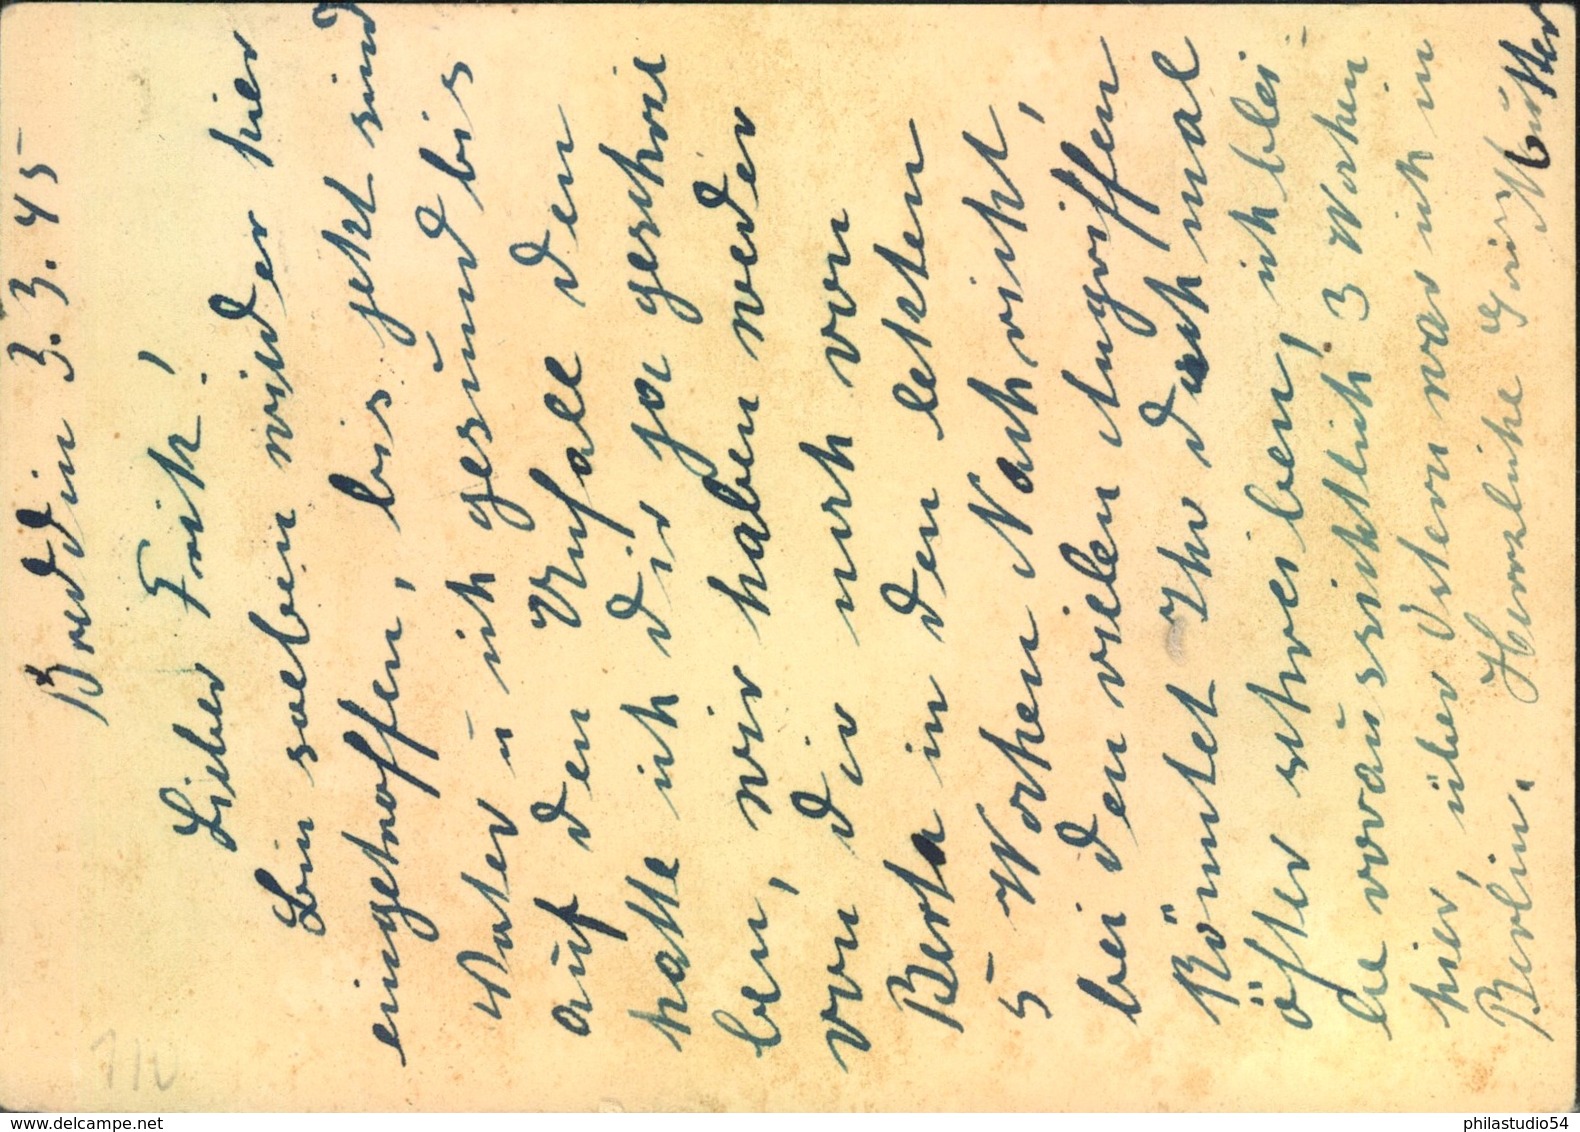 Breddin 3.3.45
Lieber Erich!
Bin soeben wieder hier
eingetroffen, bis jetzt sind
Vater u ich gesund bis
auf den Unfall den
hatte ich dir ja geschrie
ben, wir haben weder
von dir noch von
Berta in den letzten
5 Wochen Nachricht,
bei den vielen Angriffen
könntet Ihr doch mal
öfter schreiben, ich blei
be voraussichtlich 3 Wochen
hier, über Ostern war ich in
Berlin. Herzliche Grüße Mutter
710
philastudio54